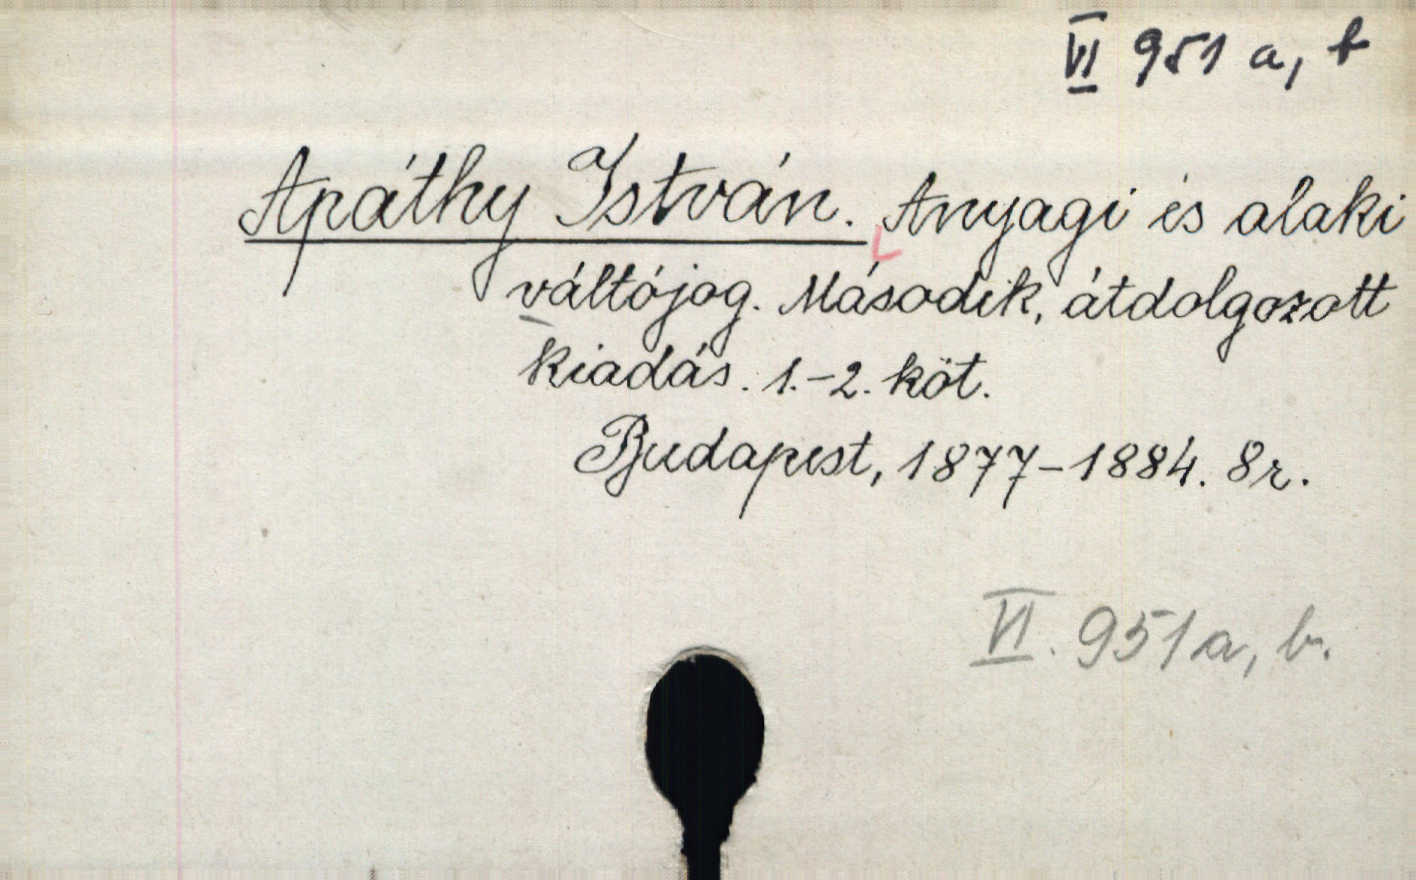 VI 951 a, b
Apáthy István. Anyagi és alaki
váltójog. Második, átdolgozott
kiadás. 1.-2. köt.
Budapest, 1877-1884. 8r.
VI. 951a, b.